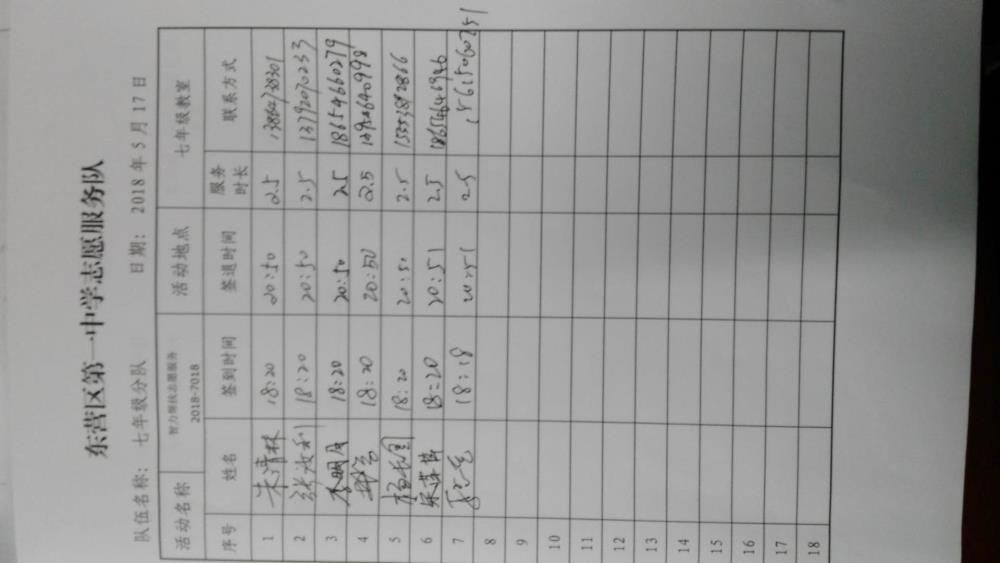 东营区第一中学志愿服务队
队伍名称： 七年级分队 日期： 2018 年 5 月 17 日
活动名称 智力帮扶志愿服务 2018-7018 活动地点 七年级教室
序号 姓名 签到时间 签退时间 服务时长 联系方式
1 朱清林 18:20 20:50 2.5 13864738301
2 张汝利 18:20 20:50 2.5 13792070233
3 李明月 18:20 20:50 2.5 18654660279
4 18:20 20:50 2.5
5 18:20 20:50 2.5 15353892866
6 18:20 20:51 2.5 18654646946
7 18:18 20:51 2.5 18615060251
8
9
10
11
12
13
14
15
16
17
18